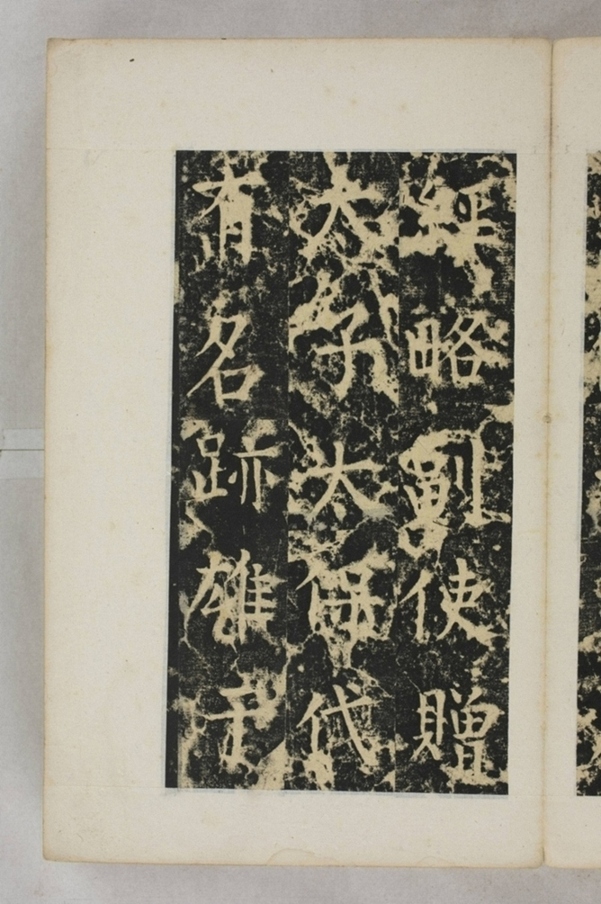 經略副使贈
太子太保代
有名跡雄王